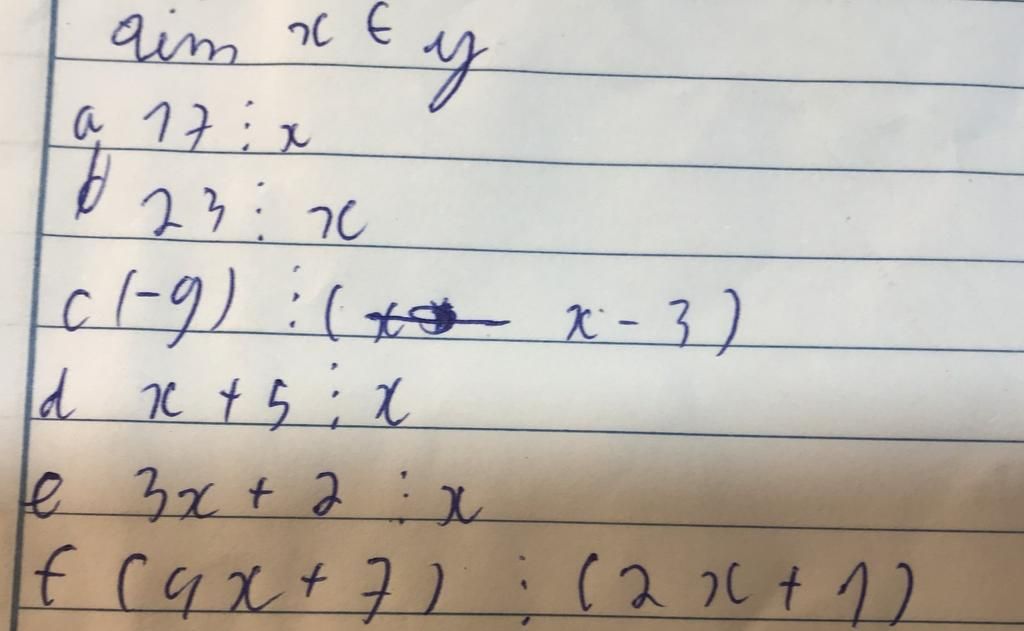 aim x ∈ y
a 17 ⋮ x
b 23 ⋮ x
c (-9) ⋮ ( x - 3 )
d x + 5 ⋮ x
e 3x + 2 ⋮ x
f (4x + 7) ⋮ (2x + 1)